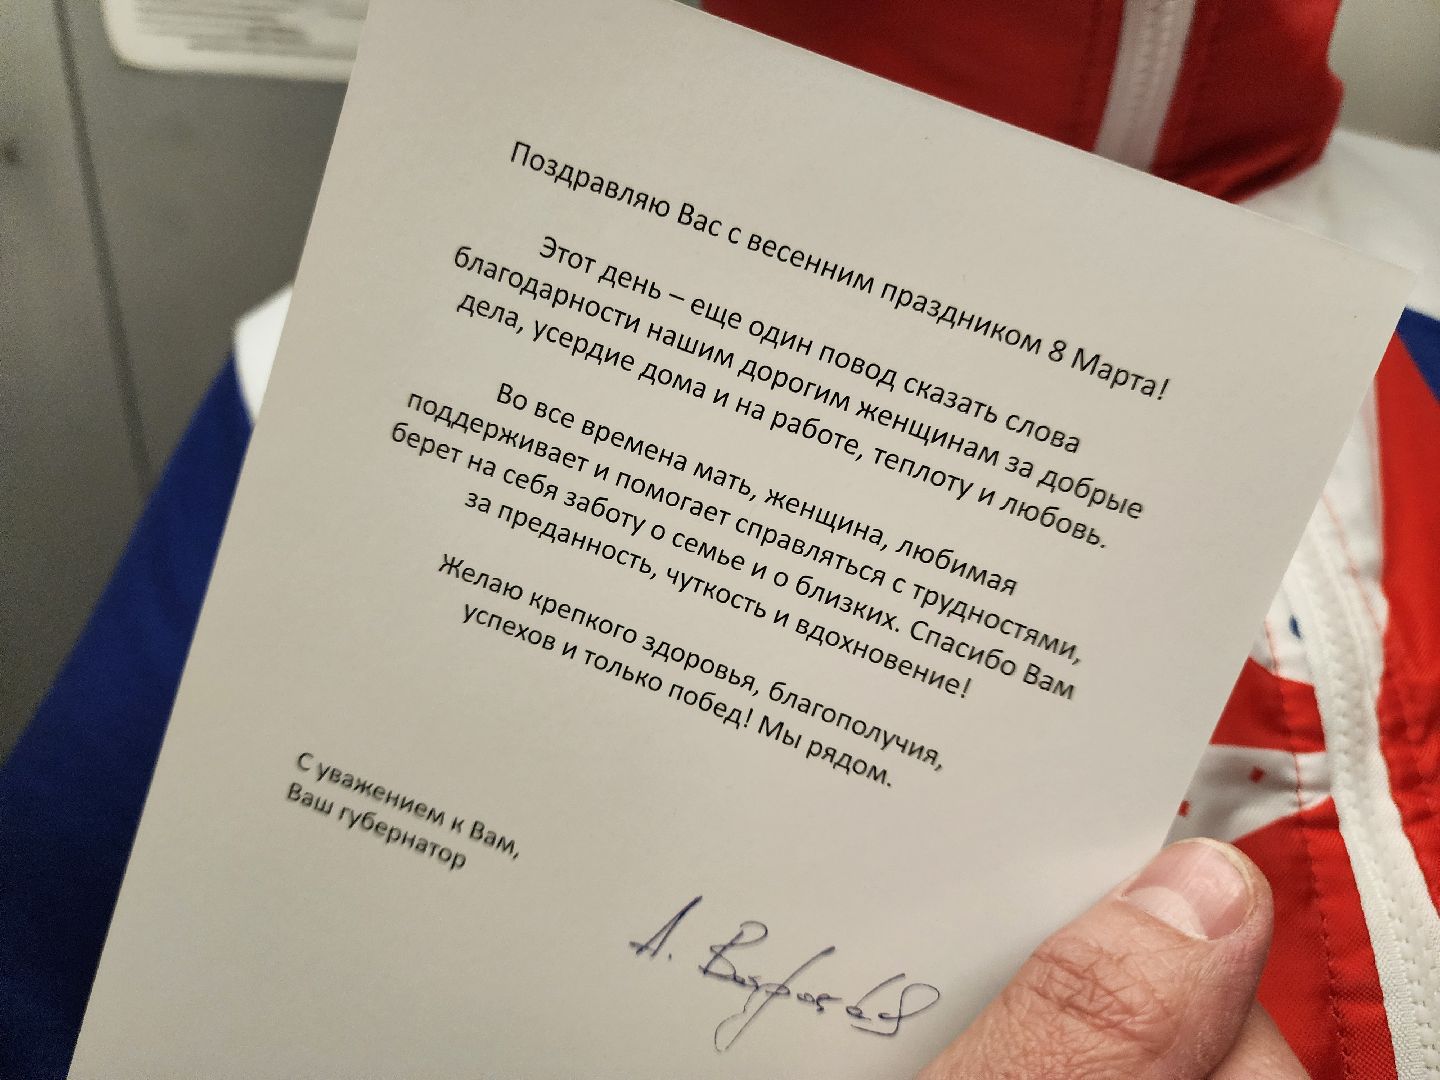 Поздравляю Вас с весенним праздником 8 Марта!
Этот день – еще один повод сказать слова
благодарности нашим дорогим женщинам за добрые
дела, усердие дома и на работе, теплоту и любовь.
Во все времена мать, женщина, любимая
поддерживает и помогает справляться с трудностями,
берет на себя заботу о семье и о близких. Спасибо Вам
за преданность, чуткость и вдохновение!
Желаю крепкого здоровья, благополучия,
успехов и только побед! Мы рядом.
С уважением к Вам,
Ваш губернатор
А.